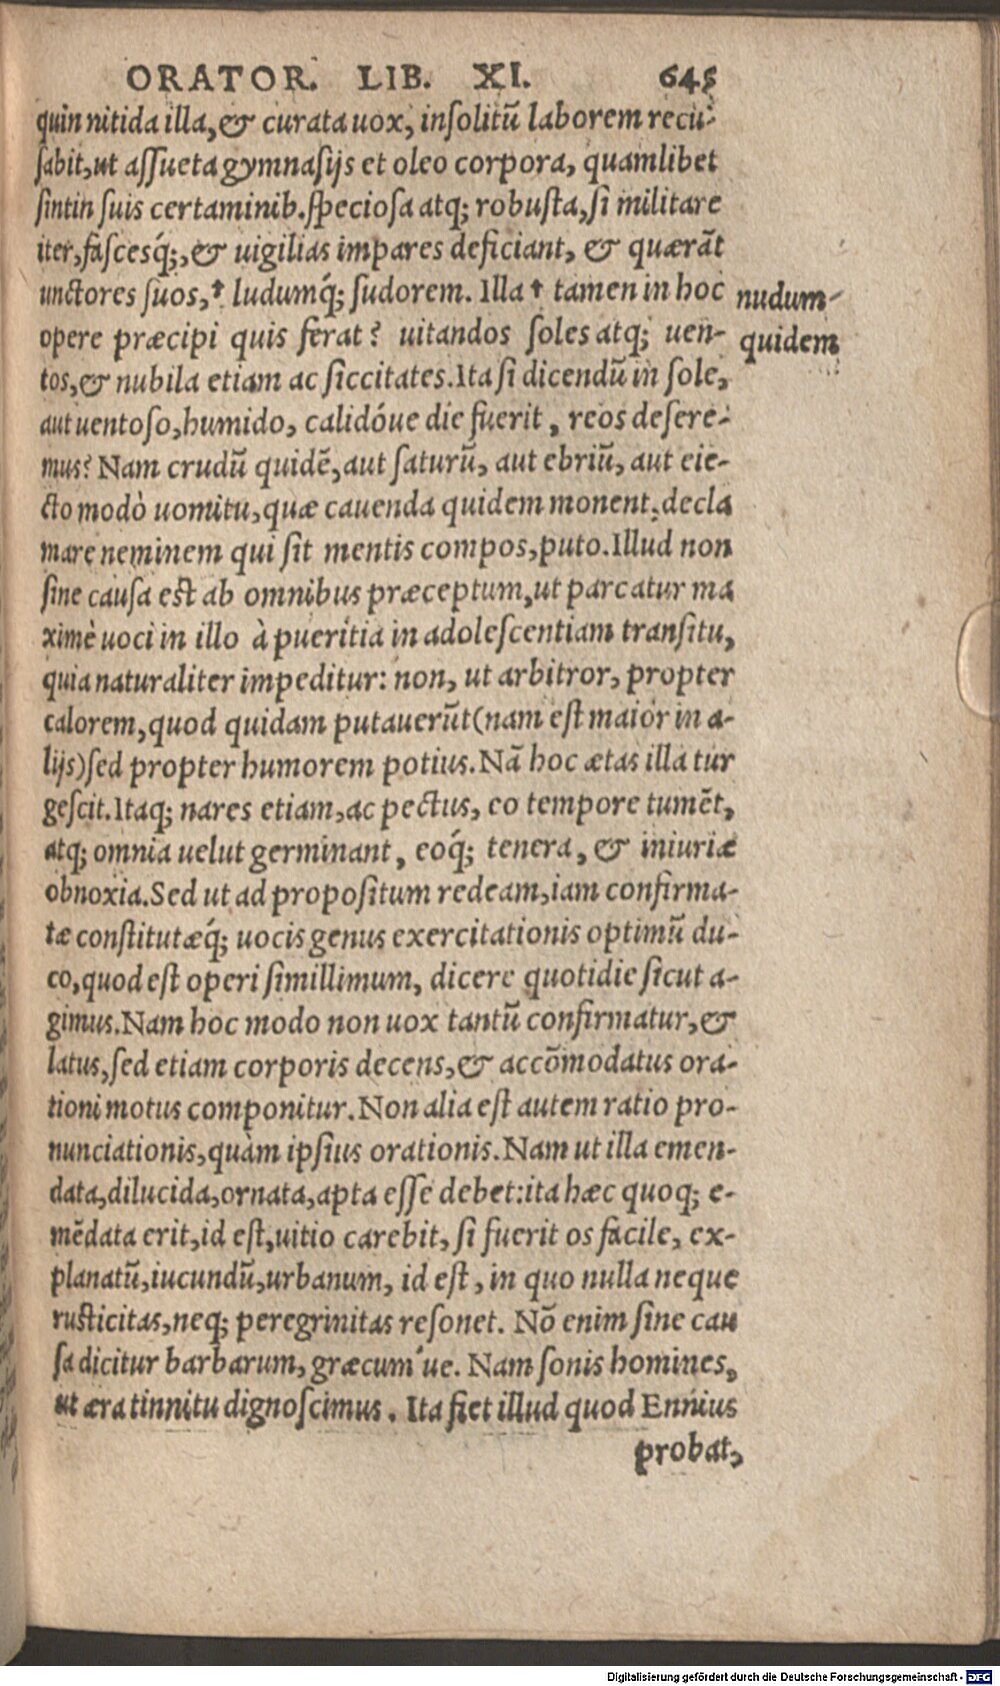 ORATOR. LIB. XI. 645
quin nitida illa, & curata uox, insolitũ laborem recu-
sabit, ut assueta gymnasijs et oleo corpora, quamlibet
sint in suis certaminib. speciosa atq; robusta, si militare
iter, fascesq́;, & uigilias impares deficiant, & quærãt
unctores suos, † ludumq́; sudorem. Illa † tamen in hoc
nudum-
opere præcipi quis ferat? uitandos soles atq; uen-
quidem
tos, & nubila etiam ac siccitates. Ita si dicendũ in sole,
aut uentoso, humido, calidóue die fuerit, reos desere-
mus? Nam crudũ quidẽ, aut saturũ, aut ebriũ, aut eie-
cto modò uomitu, quæ cauenda quidem monent, decla
mare neminem qui sit mentis compos, puto. Illud non
sine causa est ab omnibus præceptum, ut parcatur ma
ximè uoci in illo à pueritia in adolescentiam transitu,
quia naturaliter impeditur: non, ut arbitror, propter
calorem, quod quidam putauerũt (nam est maior in a-
lijs) sed propter humorem potius. Nã hoc ætas illa tur
gescit. Itaq; nares etiam, ac pectus, eo tempore tumẽt,
atq; omnia uelut germinant, eoq́; tenera, & iniuriæ
obnoxia. Sed ut ad propositum redeam, iam confirma-
tæ constitutæq́; uocis genus exercitationis optimũ du-
co, quod est operi simillimum, dicere quotidie sicut a-
gimus. Nam hoc modo non uox tantũ confirmatur, &
latus, sed etiam corporis decens, & accõmodatus ora-
tioni motus componitur. Non alia est autem ratio pro-
nunciationis, quàm ipsius orationis. Nam ut illa emen-
data, dilucida, ornata, apta esse debet: ita hæc quoq; e-
mẽdata erit, id est, uitio carebit, si fuerit os facile, ex-
planatũ, iucundũ, urbanum, id est, in quo nulla neque
rusticitas, neq; peregrinitas resonet. Nõ enim sine cau
sa dicitur barbarum, græcum´ue. Nam sonis homines,
ut æra tinnitu dignoscimus. Ita fiet illud quod Ennius
probat,
Digitalisierung gefördert durch die Deutsche Forschungsgemeinschaft - DFG